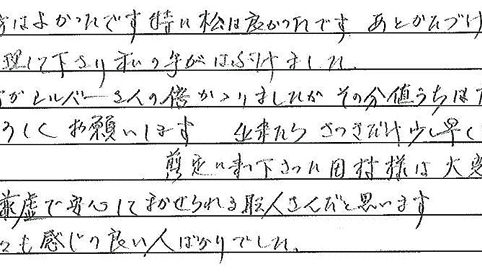 はよかったです 特に松は良かったです あとかたづけ
理して下さり私の手がはぶけました。
がシルバーさんの倍かかりましたが その分値うちは
ろしくお願いします 出来たら さつきだけ少し早く
剪定に来て下さった田村様は大変
謙虚で安心してまかせられる職人さんだと思います
も感じの良い人ばかりでした。